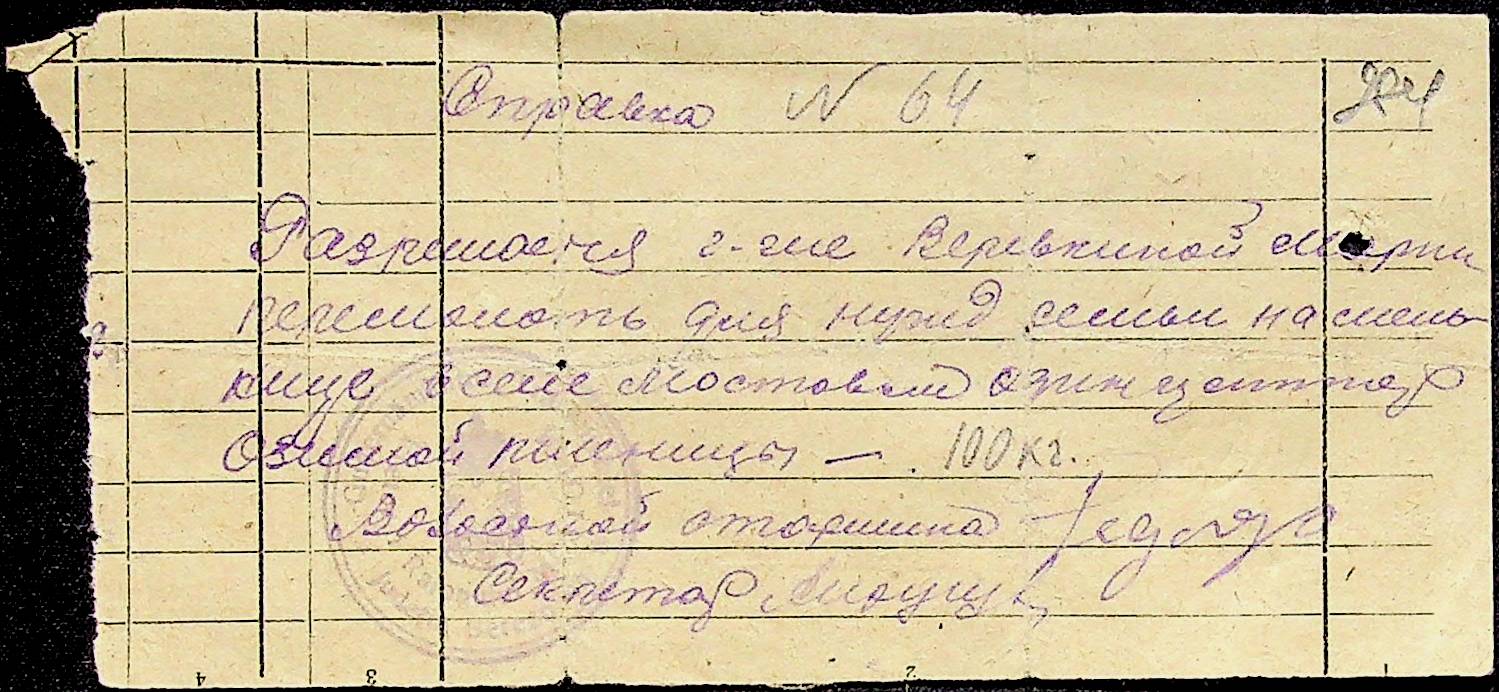 Справка N 64
Разрешается г-не Веревкиной Марии
перемолоть для нужд семьи на мель-
нице в селе Мостовом один центнер
озимой пшеницы — 100 кг.
Волостной старшина
Секретар
4 3 2 1